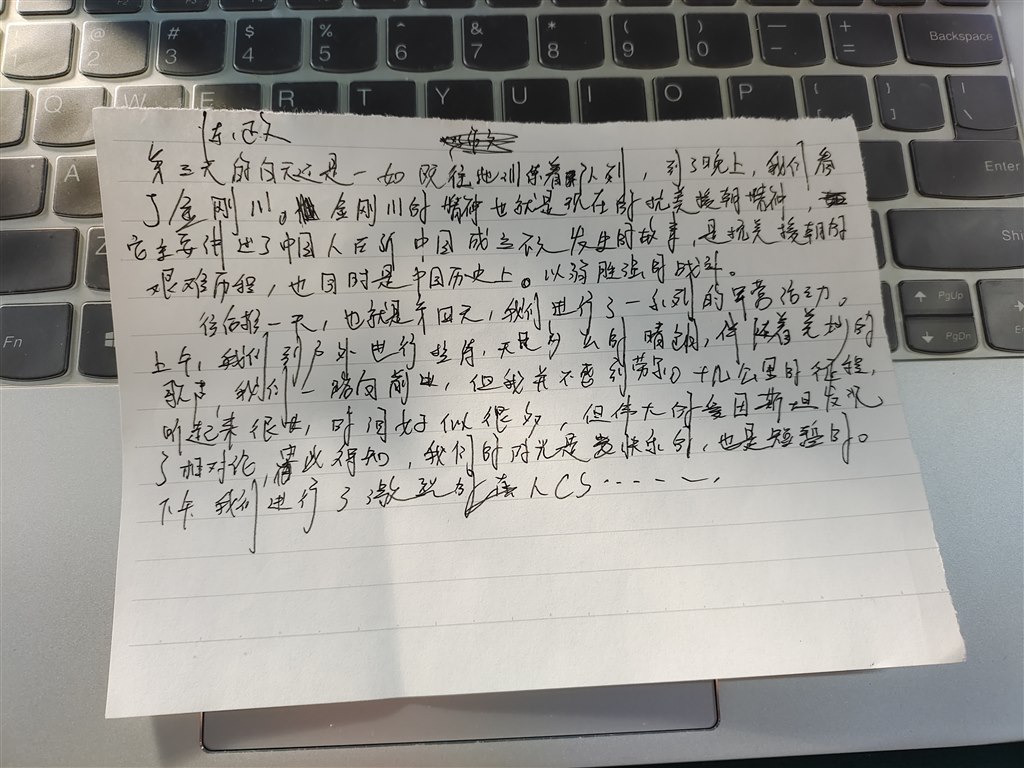 ! 1 @ 2 # 3 $ 4 % 5 ^ 6 & 7 * 8 ( 9 ) 0 — - + = Backspace
Q W E R T Y U I O P { [ } ] | \
A Enter
Shi
Fn PgUp PgDn
陈
第三天的白天还是一如既往地训练着队列，到了晚上，我们看
了金刚川。金刚川的精神也就是现在的抗美援朝精神，
它主要讲述了中国人民所 中国成立不久发生的故事，是抗美援朝的
艰难历程，也同时是中国历史上。以弱胜强的战斗。
往后推一天，也就是第四天，我们进行了一系列的军营活动。
上午，我们到户外进行，天是的晴朗，伴随着美妙的
歌声，我们一路向前，但我并不感到劳累。十几公里的征程，
听起来很，时间好似很多，但伟大的爱因斯坦发现
了相对论，由此得知，我们的时光是快乐的，也是短暂的。
下午我们进行了激烈的真人CS……